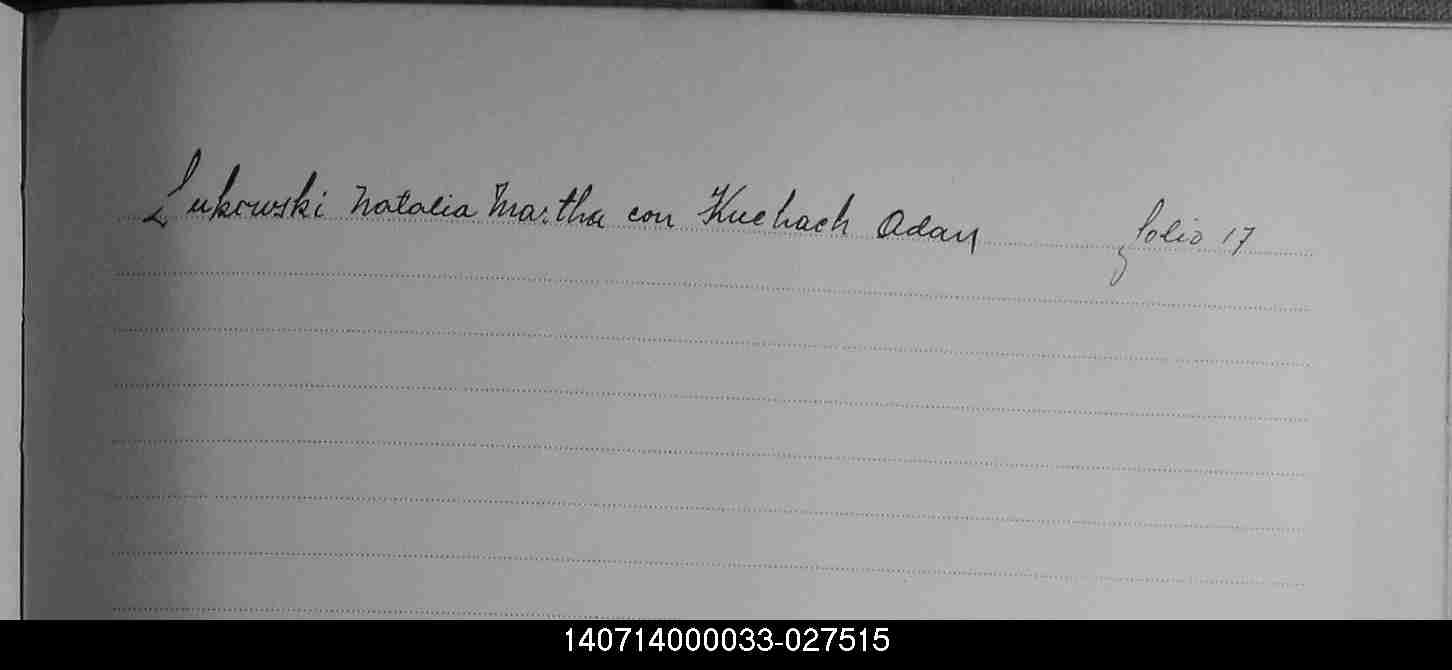 Lukowski Natalia Martha con Kuchach Adan folio 17
140714000033-027515